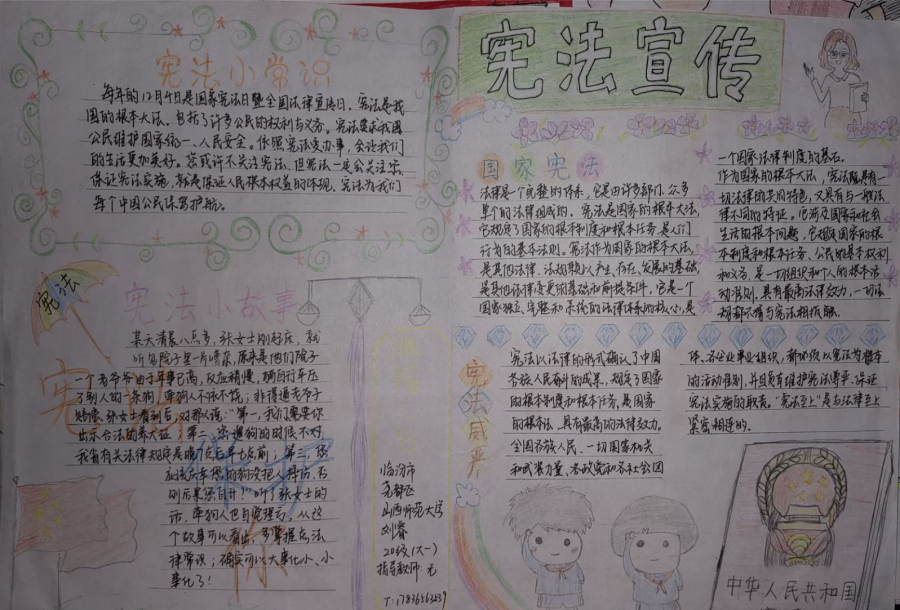 宪法宣传
宪法小常识
每年的12月4日是国家宪法日暨全国法律宣传日。宪法是我
国的根本大法。包括了许多公民的权利与义务。宪法要求我国
公民维护国家统一、人民安全。依照宪法来办事，会让我们
的生活更加美好。您或许不关注宪法，但宪法一定会关注您
保证宪法实施，就是保证人民根本权益的体现，宪法为我们
每个中国公民保驾护航。
宪法
宪法小故事
某天清晨八点多，张女士刚起床，就
听见院子里一片喧哗，原来是他们院子
一个老爷爷由于年事已高，反应稍慢，
了别人的一条狗，牵狗人不依不饶；非得逼老爷子
赔偿，张女士看到后，对那人说：“第一，我们要求你
出示合法的养犬证，第二，您遛狗的时候不对，
我省有关法律规定是晚七点后早七点前；第三，您
应该庆幸您的狗没把人撞伤，否
则后果您自付！”听了张女士的
话，牵狗人也自觉理亏，从这
个故事可以看出，多掌握点法
律常识；确实可以大事化小、小
事化了！
临汾市
尧都区
山西师范大学
刘睿
20级（大一）
指导教师：无
国家宪法
法律是一个完整的体系，它是由许多部门、众多
单个的法律组成的。宪法是国家的根本大法，
它规定了国家的根本制度和根本任务，是人们
行为的基本法则。宪法作为国家的根本大法，
是其他法律、法规赖以产生、存在、发展的基础，
是其他法律变更的基础和前提条件，它是一个
国家独立、完整和系统的法律体系的核心，是
一个国家法律制度的基石。
作为国家的根本大法，宪法既具有一
切法律的共同特色，又具有与一般法
律不同的特征。它涉及国家和社会
生活的根本问题，它规定国家的根
本制度和根本任务、公民的基本权利
和义务，是一切组织和个人的根本活
动准则，具有最高法律效力，一切法
规都不得与宪法相抵触。
宪法威严
宪法以法律的形式确认了中国
各族人民奋斗的成果，规定了国家
的根本制度和根本任务，是国家
的根本法，具有最高的法律效力。
全国各族人民、一切国家机关
和武装力量、各政党和各社会团
体、各企业事业组织，都必须以宪法为根本
的活动准则，并且负有维护宪法尊严、保证
宪法实施的职责。“宪法至上”是与法律至上
紧密相连的。
中华人民共和国